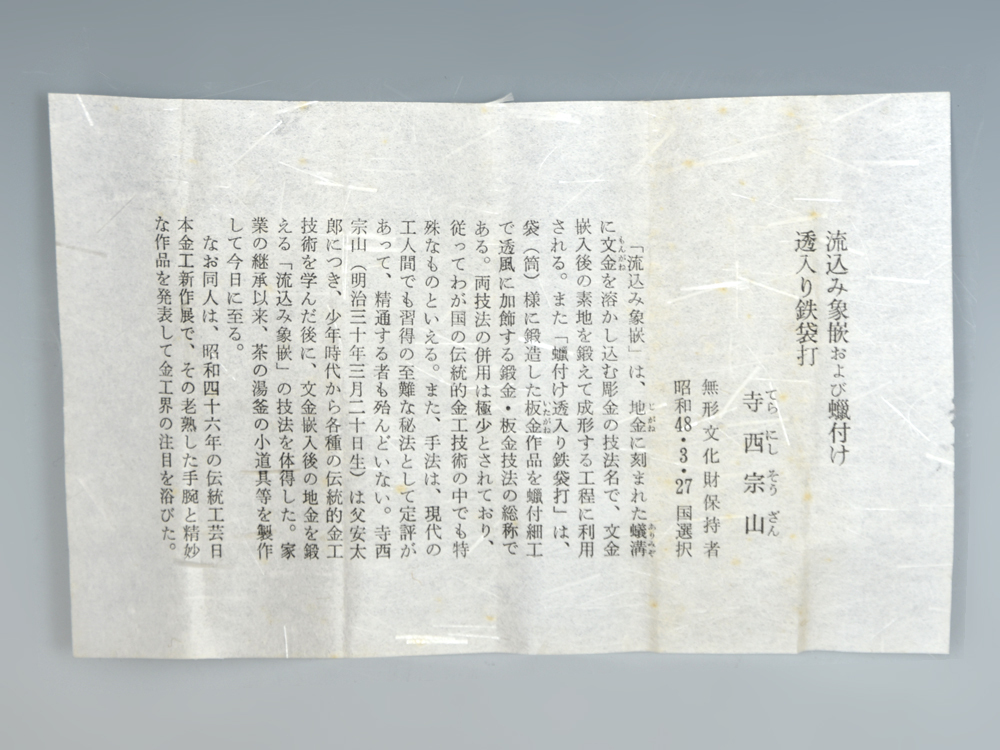 流込み象嵌および蠟付け
透入り鉄袋打
寺西宗山
てらにしそうざん
無形文化財保持者
昭和48・3・27国選択
「流込み象嵌」は、地金に刻まれた蟻溝
に文金を溶かし込む彫金の技法名で、文金
嵌入後の素地を鍛えて成形する工程に利用
される。また「蠟付け透入り鉄袋打」は、
袋（筒）様に鍛造した板金作品を蠟付細工
で透風に加飾する鍛金・板金技法の総称で
ある。両技法の併用は極少とされており、
従ってわが国の伝統的金工技術の中でも特
殊なものといえる。また、手法は、現代の
工人間でも習得の至難な秘法として定評が
あって、精通する者も殆んどいない。寺西
宗山（明治三十年三月二十日生）は父安太
郎につき、少年時代から各種の伝統的金工
技術を学んだ後に、文金嵌入後の地金を鍛
える「流込み象嵌」の技法を体得した。家
業の継承以来、茶の湯釜の小道具等を製作
して今日に至る。
なお同人は、昭和四十六年の伝統工芸日
本金工新作展で、その老熟した手腕と精妙
な作品を発表して金工界の注目を浴びた。